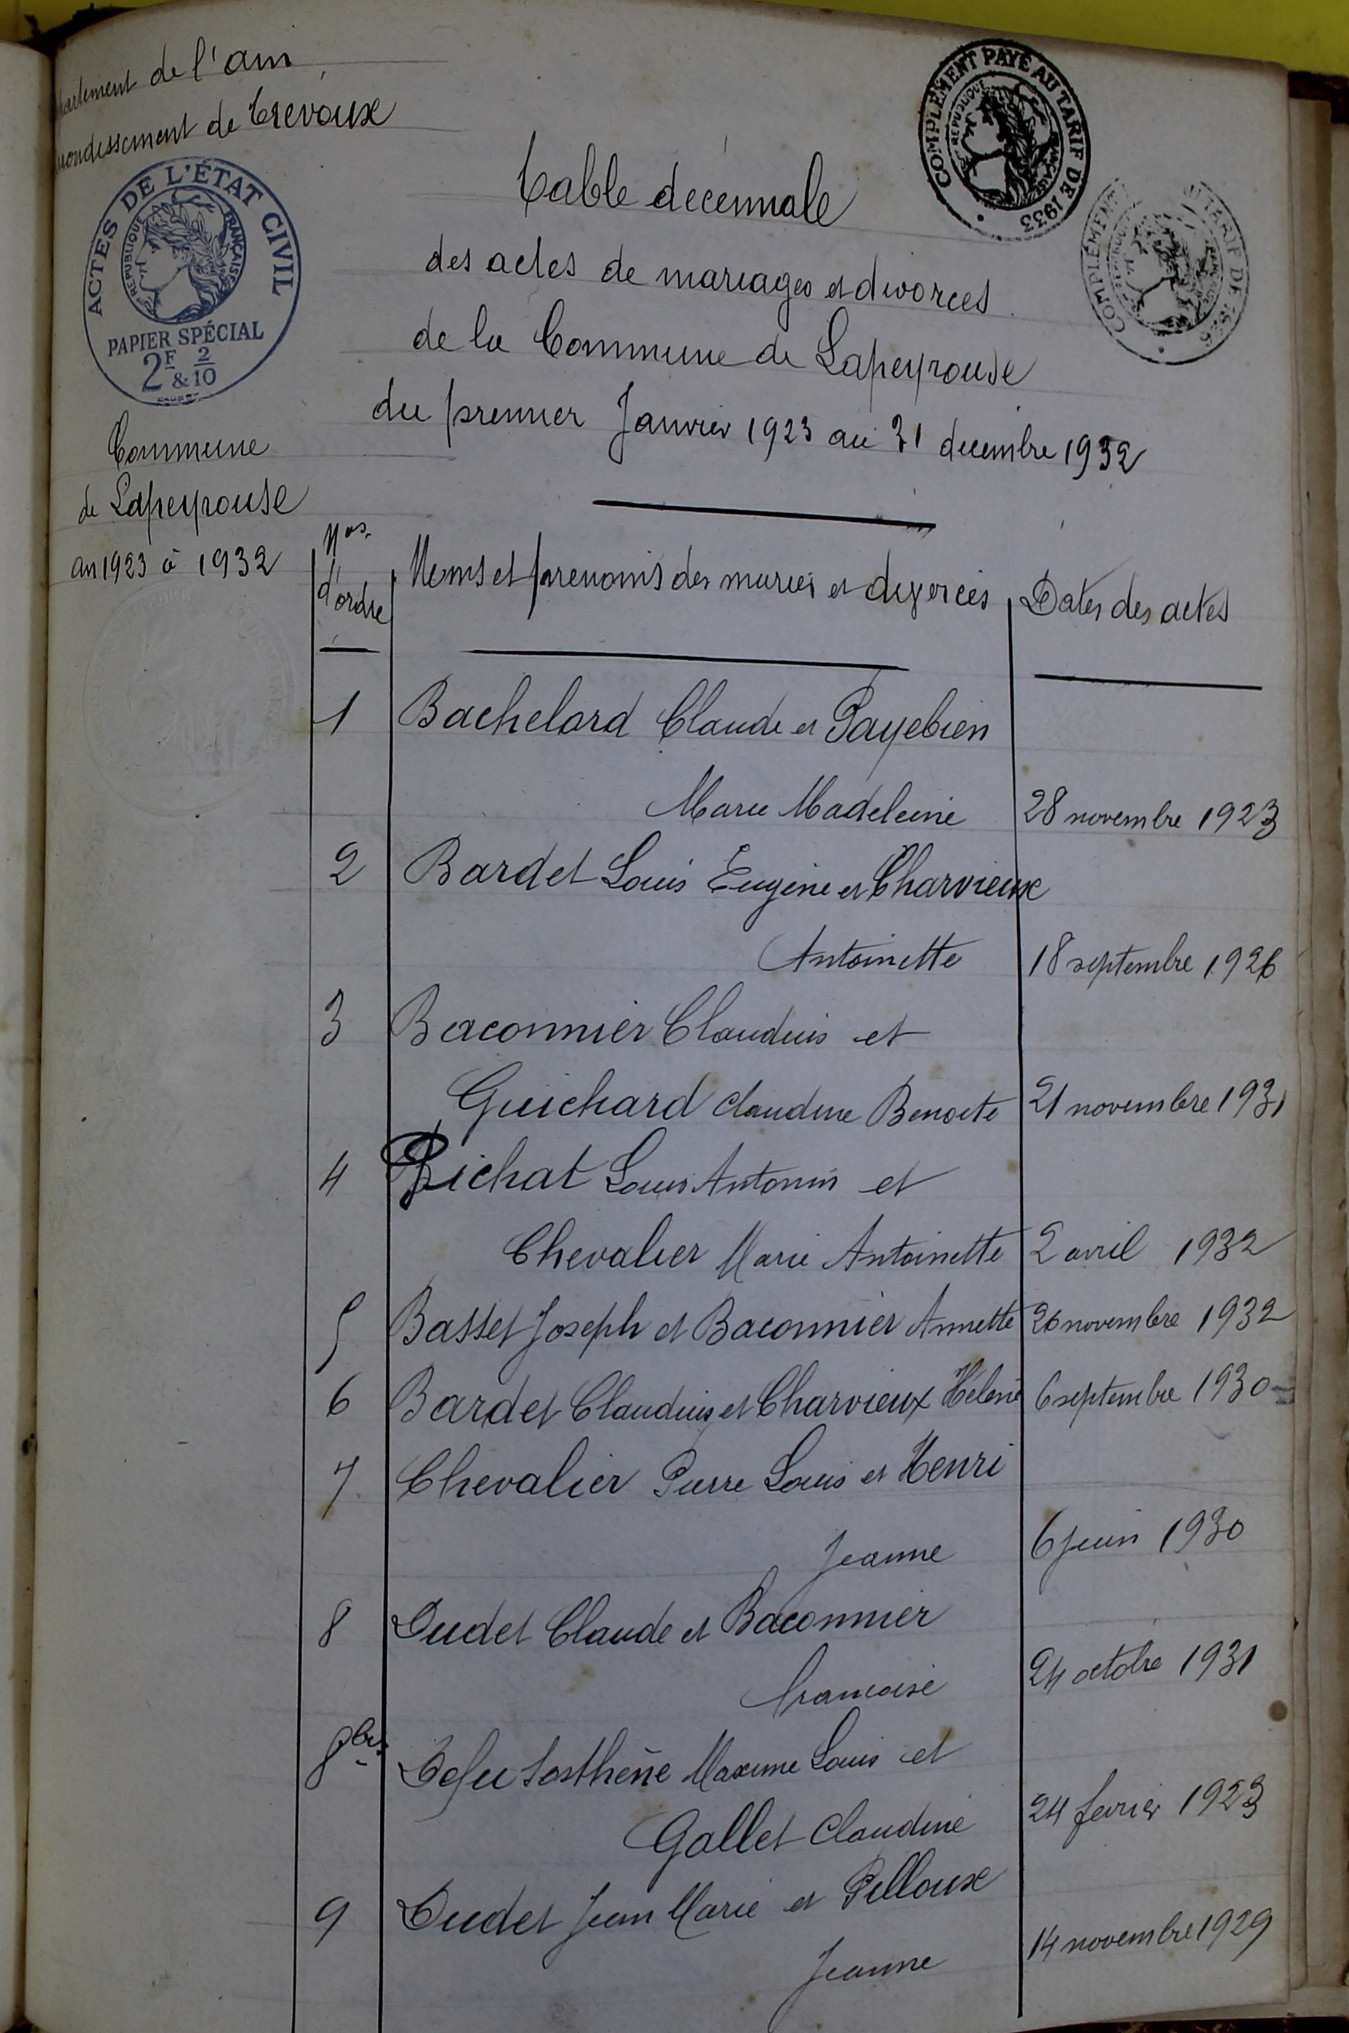 partement de l'ain
rondissement de Trevoux
ACTES DE L'ÉTAT CIVIL
RÉPUBLIQUE FRANÇAISE
PAPIER SPÉCIAL
2F 2
& 10
COMPLÉMENT PAYÉ AU TARIF DE 1933
RÉPUBLIQUE FRANÇAISE
COMPLÉMENT TARIF DE
Table decennale
des actes de mariages et divorces
de la Commune de Lapeyrouse
du premier Janvier 1923 au 31 decembre 1932
Commune
de Lapeyrouse
an 1923 à 1932
Nos d'ordre Noms et prenoms des mariés et divorcés Dates des actes
1 Bachelard Claude et Payebien
Marie Madeleine 28 novembre 1923
2 Bardet Louis Eugène et Charvieux
Antoinette 18 septembre 1926
3 Baconnier Claudius et
Guichard Claudine Benoite 21 novembre 1931
4 Pichat Louis Antonin et
Chevalier Marie Antoinette 2 avril 1932
5 Basset Joseph et Baconnier Annette 26 novembre 1932
6 Bardet Claudius et Charvieux Hélène 6 septembre 1930
7 Chevalier Pierre Louis et Henri
Jeanne 6 juin 1930
8 Dudet Claude et Baconnier
Francoise 24 octobre 1931
8 bis Sosthène Maxime Louis et
Gallet Claudine 24 fevrier 1923
9 Dudet Jean Marie et Pelloux
Jeanne 14 novembre 1929